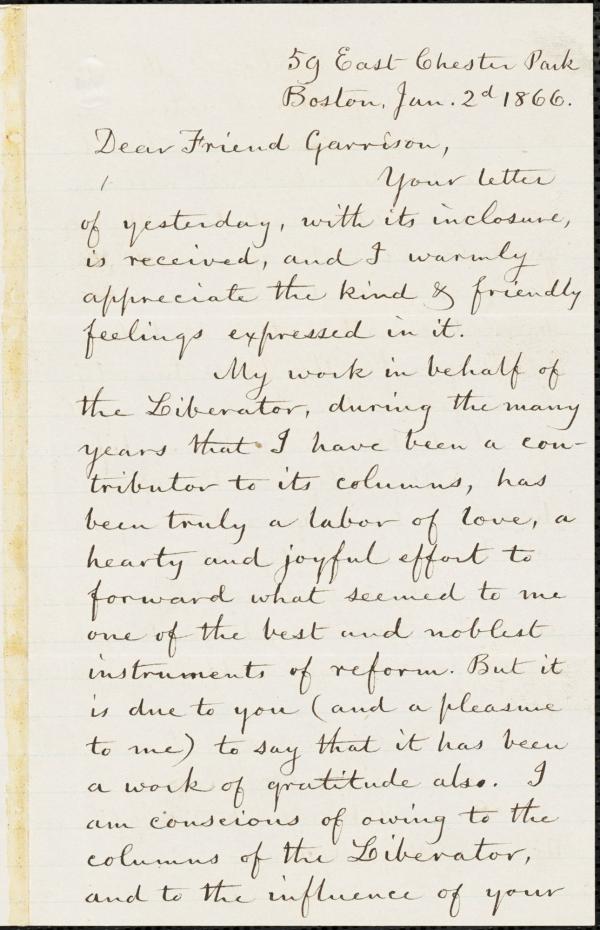 59 East Chester Park
Boston, Jan. 2d 1866.
Dear Friend Garrison,
Your letter
of yesterday, with its inclosure,
is received, and I warmly
appreciate the kind & friendly
feelings expressed in it.
My work in behalf of
the Liberator, during the many
years that I have been a con-
tributor to its columns, has
been truly a labor of love, a
hearty and joyful effort to
forward what seemed to me
one of the best and noblest
instruments of reform. But it
is due to you (and a pleasure
to me) to say that it has been
a work of gratitude also. I
am conscious of owing to the
columns of the Liberator,
and to the influence of your